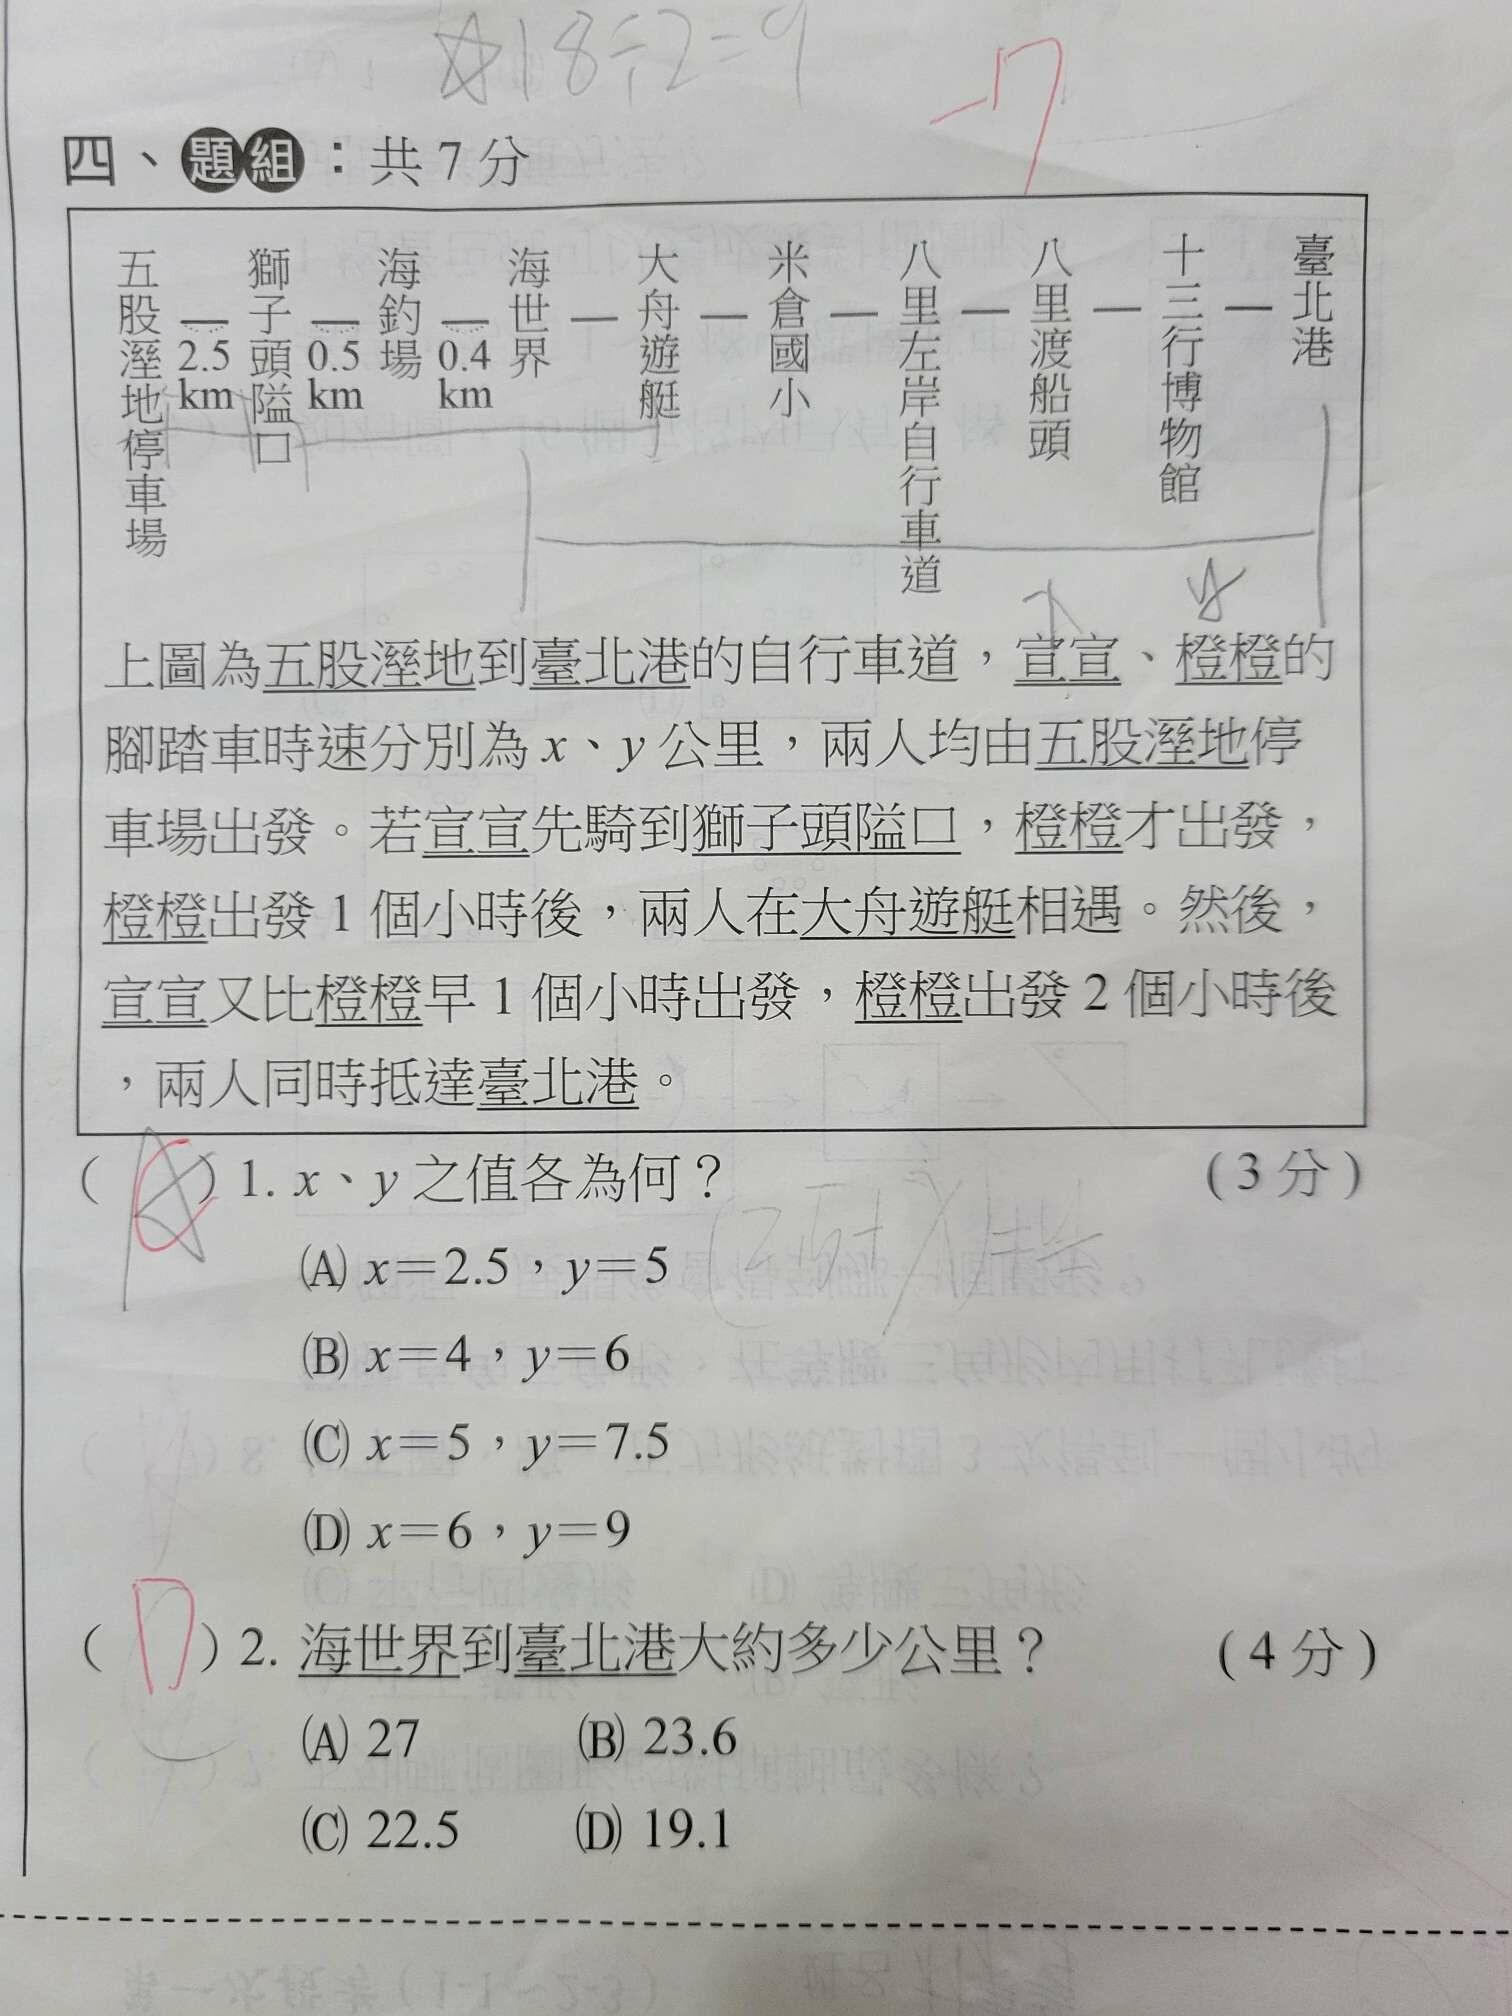 ☆18÷2=9
-7
四、題組：共7分
五股溼地停車場
2.5 km
獅子頭隘口
0.5 km
海釣場
0.4 km
海世界
大舟遊艇
米倉國小
八里左岸自行車道
八里渡船頭
十三行博物館
臺北港
x
y
上圖為五股溼地到臺北港的自行車道，宣宣、橙橙的
腳踏車時速分別為x、y公里，兩人均由五股溼地停
車場出發。若宣宣先騎到獅子頭隘口，橙橙才出發，
橙橙出發1個小時後，兩人在大舟遊艇相遇。然後，
宣宣又比橙橙早1個小時出發，橙橙出發2個小時後
，兩人同時抵達臺北港。
( C )1. x、y之值各為何？ (3分)
(A) x=2.5，y=5
(B) x=4，y=6
(C) x=5，y=7.5
(D) x=6，y=9
( D )2. 海世界到臺北港大約多少公里？ (4分)
(A) 27 (B) 23.6
(C) 22.5 (D) 19.1